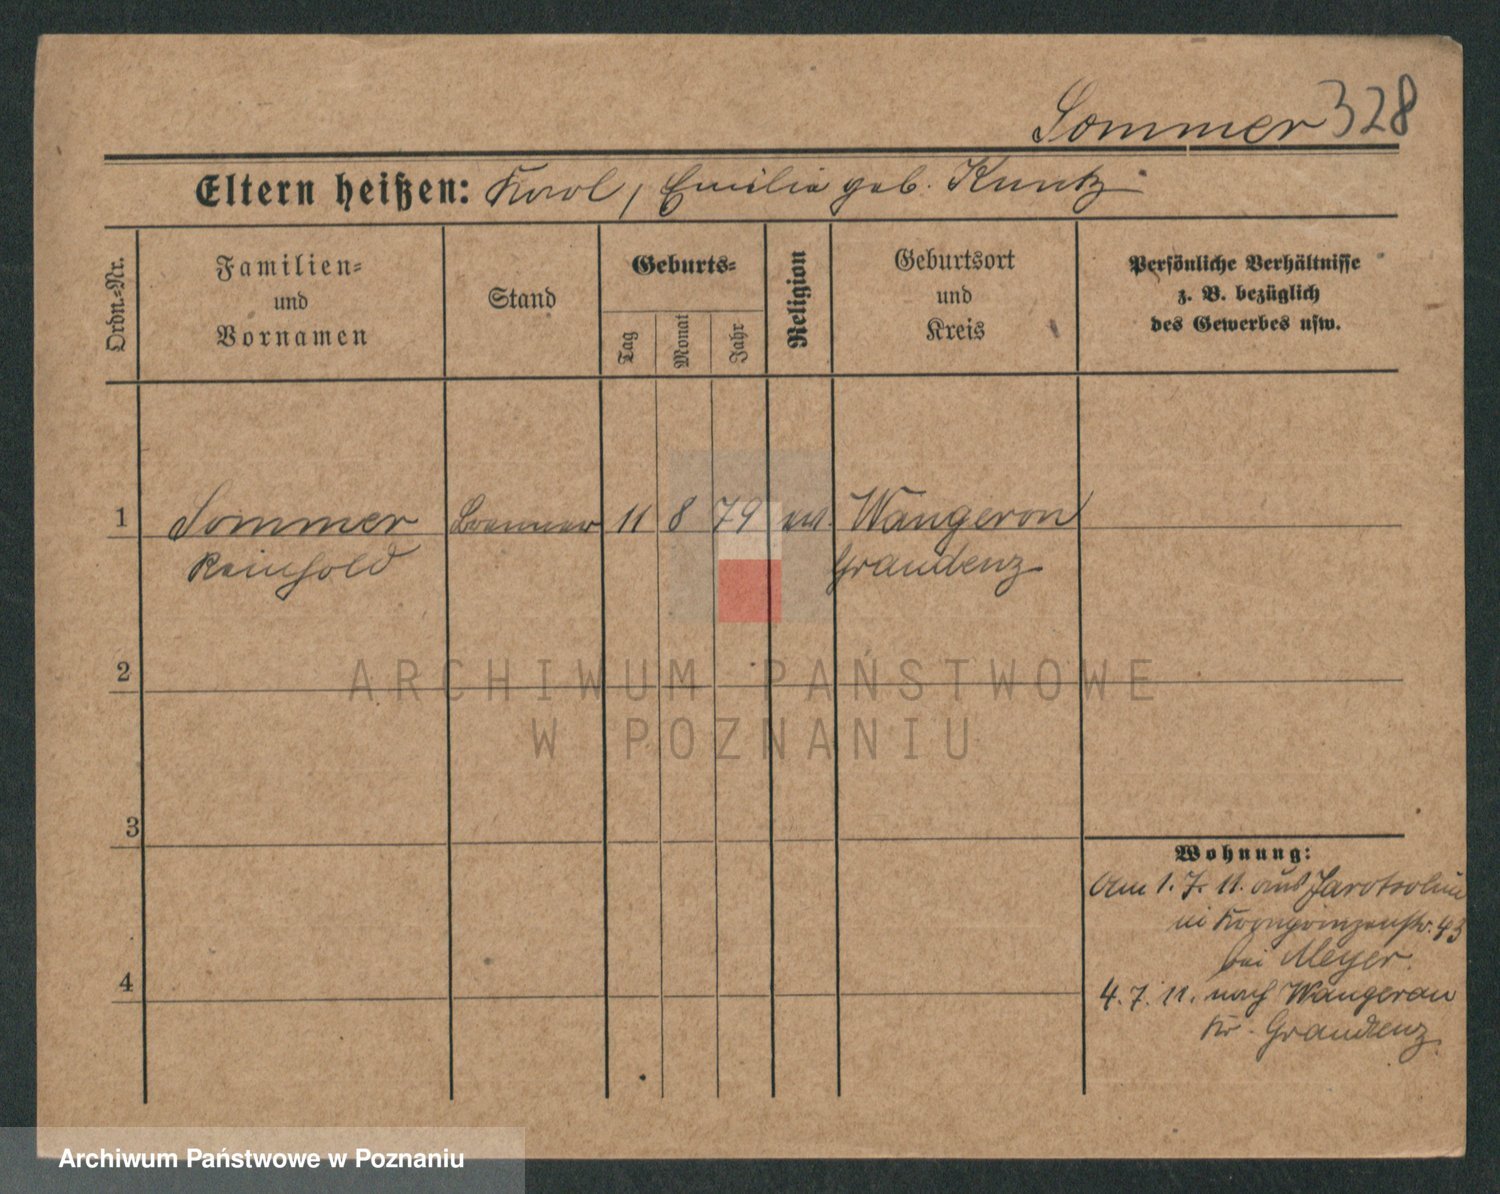 Sommer 328
Eltern heißen: Karl, Emilie geb. Kuntz
Ordn.-Nr.
Familien-
und
Vornamen
Stand
Geburts-
Tag
Monat
Jahr
Religion
Geburtsort
und
Kreis
Persönliche Verhältnisse
z. B. bezüglich
des Gewerbes usw.
1 Sommer Brenner 11 8 79 ev. Wangerau
Reinhold Graudenz
2
3
4
Wohnung:
Am 1. 7. 11. aus
in Kronprinzenstr. 43
bei Meyer.
4. 7. 11. nach Wangerau
Kr. Graudenz.
ARCHIWUM PAŃSTWOWE
W POZNANIU
Archiwum Państwowe w Poznaniu